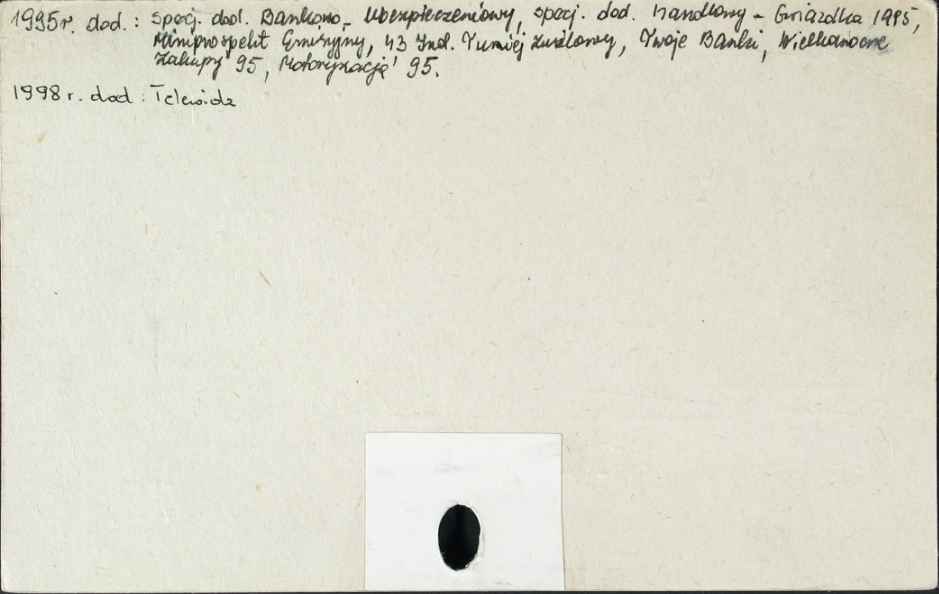 1995r. dod. : specj. dod. Bankowo-Ubezpieczeniowy, specj. dod. handlowy - Gwiazdka 1995,
Miniprospekt Emisyjny, 43 Ind. Turniej żużlowy, Twoje Banki, Wielkanocne
zakupy '95, Motoryzacja' 95.
1998 r. dod : Telewidz